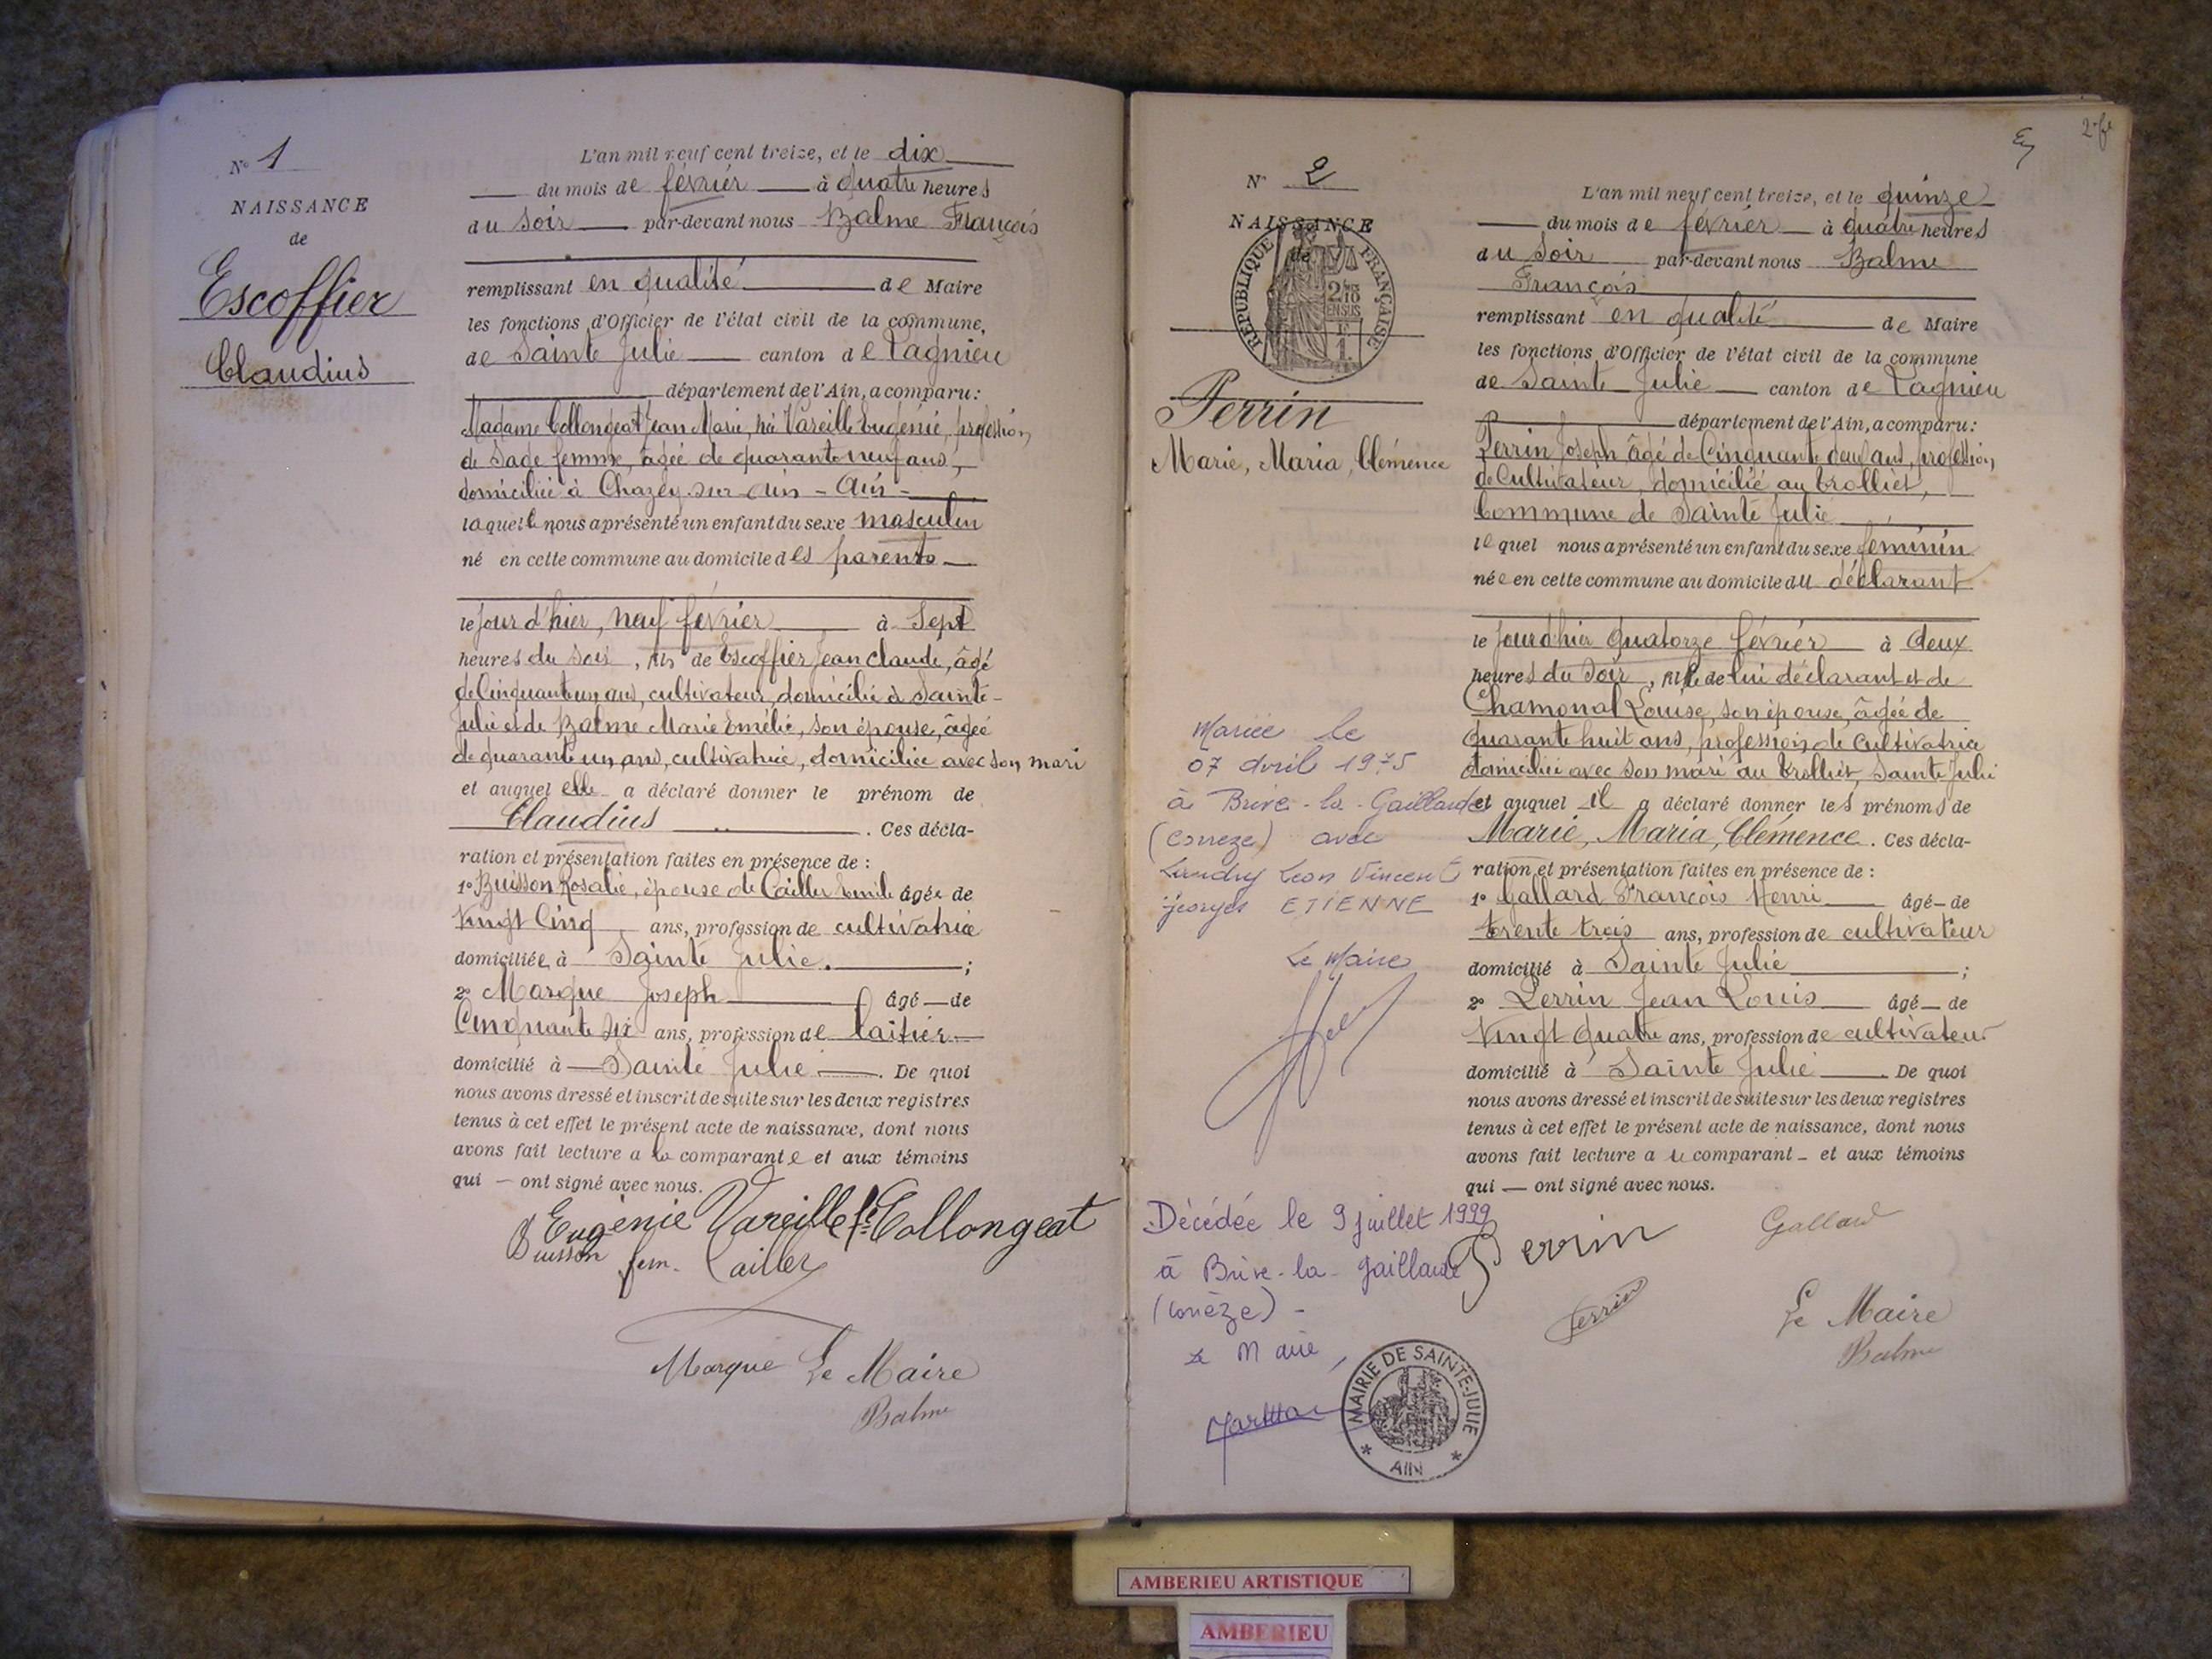 N° 1
NAISSANCE
de
Escoffier
Claudius
L'an mil neuf cent treize, et le dix
du mois de février à quatre heures
du soir par-devant nous Balme François
remplissant en qualité de Maire
les fonctions d'Officier de l'état civil de la commune,
de Sainte Julie canton de Lagnieu
département de l'Ain, a comparu:
Madame Collongeat Jean Marie, née Vareille Eugénie, profession
de Sage femme, âgée de quarante neuf ans,
domiciliée à Chazey-sur-Ain - Ain -
laquelle nous a présenté un enfant du sexe masculin
né en cette commune au domicile des parents
le jour d'hier, neuf février à Sept
heures du soir, fils de Escoffier Jean Claude, âgé
de Cinquante un ans, cultivateur, domicilié à Sainte-
Julie et de Balme Marie Emélie, son épouse, âgée
de quarante un ans, cultivatrice, domiciliée avec son mari
et auquel elle a déclaré donner le prénom de
Claudius . Ces décla-
ration et présentation faites en présence de :
1° Buisson Rosalie, épouse de Cailler Emile âgée de
Vingt Cinq ans, profession de cultivatrice
domiciliée à Sainte Julie. ;
2° Marque Joseph âgé de
Cinquante six ans, profession de laitier
domicilié à Sainte Julie . De quoi
nous avons dressé et inscrit de suite sur les deux registres
tenus à cet effet le présent acte de naissance, dont nous
avons fait lecture a la comparante et aux témoins
qui — ont signé avec nous.
Eugénie Vareille fe Collongeat
Buisson fem. Cailler
Marque Le Maire
Balme
2
N° 2
NAISSANCE
de
RÉPUBLIQUE FRANÇAISE
Perrin
Marie, Maria, Clémence
L'an mil neuf cent treize, et le quinze
du mois de février à quatre heures
du Soir par-devant nous Balme
François
remplissant en qualité de Maire
les fonctions d'Officier de l'état civil de la commune
de Sainte Julie canton de Lagnieu
département de l'Ain, a comparu:
Perrin Joseph âgé de Cinquante deux ans, profession
de Cultivateur, domicilié au trolliet,
Commune de Sainte Julie
lequel nous a présenté un enfant du sexe féminin
née en cette commune au domicile du déclarant
le jour d'hier quatorze février à deux
heures du Soir, fille de lui déclarant et de
Chamonal Louise, son épouse, âgée de
quarante huit ans, profession de Cultivatrice
domiciliée avec son mari au trolliet, Sainte Julie
et auquel il a déclaré donner les prénoms de
Marie, Maria, Clémence . Ces décla-
ration et présentation faites en présence de :
1° Gallard François Henri âgé de
trente trois ans, profession de cultivateur
domicilié à Sainte Julie ;
2° Perrin Jean Louis âgé de
Vingt quatre ans, profession de cultivateur
domicilié à Sainte Julie . De quoi
nous avons dressé et inscrit de suite sur les deux registres
tenus à cet effet le présent acte de naissance, dont nous
avons fait lecture a le comparant et aux témoins
qui — ont signé avec nous.
Perrin Gallard
Perrin Le Maire
Balme
Mariée le
07 avril 1975
à Brive-la-Gaillarde
(Corrèze) avec
Landry Léon Vincent
Georges ETIENNE
Le Maire
Décédée le 9 juillet 1999
à Brive-la-Gaillarde
(Corrèze) -
Le Maire,
MAIRIE DE SAINTE-JULIE
* AIN *
AMBERIEU ARTISTIQUE
AMBERIEU